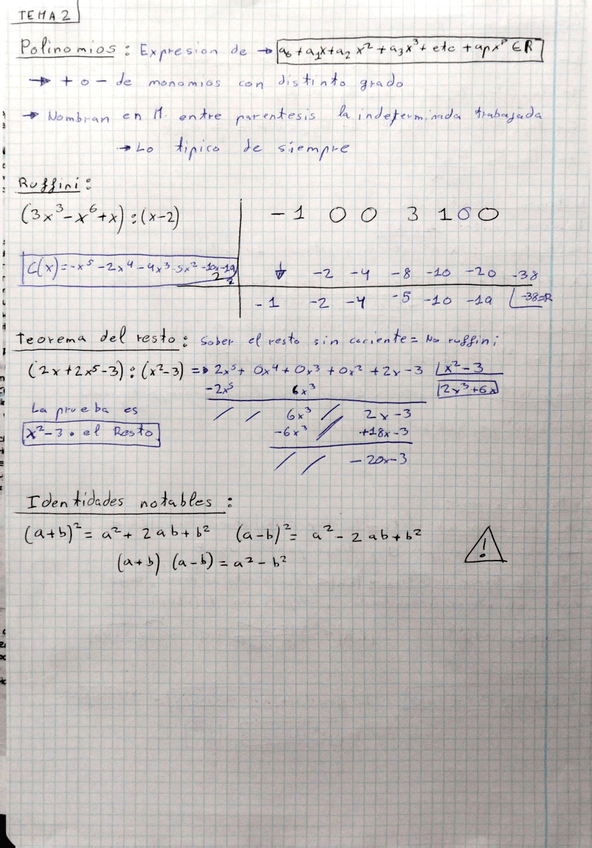 TEMA 2
Polinomios: Expresion de → a₀ + a₁x + a₂ x² + a₃x³ + etc + apxᵖ ∈ R
→ + o - de monomios con distinto grado
→ Nombran en M. entre parentesis la indeterminada trabajada
→ Lo tipico de siempre
Ruffini:
(3x³ - x⁶ + x) : (x-2)
-1 0 0 3 1 0 0
C(x) = -x⁵ - 2x⁴ - 4x³ - 5x² - 10x - 19
↓ -2 -4 -8 -10 -20 -38
2
-1 -2 -4 -5 -10 -19 -38=R
Teorema del resto: Saber el resto sin cociente = No ruffini
(2x + 2x⁵ - 3) : (x² - 3) => 2x⁵ + 0x⁴ + 0x³ + 0x² + 2x - 3 x² - 3
-2x⁵ 6x³ 2x³ + 6x
La prueba es / / 6x³ // 2x - 3
x² - 3 · el Resto -6x³ +18x - 3
/ / - 20x - 3
Identidades notables:
(a+b)² = a² + 2ab + b² (a-b)² = a² - 2ab + b²
(a+b) (a-b) = a² - b²
!